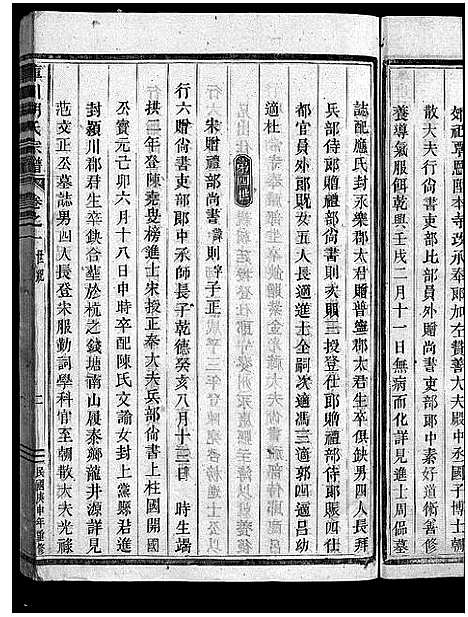 如祖覃恩
本寺改承奉郎加左贊善大夫殿中丞國子博士朝
散大夫行尚書比部員外贈尚書吏部郎中素好道術善修
養導氣服餌乾興壬戌二月十一日無病而化詳見進士周
墓
誌配應氏封永樂郡太君贈普寧郡太君生卒俱缺男四人長拜
兵部侍郎贈禮部尚書則次賜三授登仕郎贈禮部侍郎賜四仕
都官員外郎女五人長適進士全嗣次適馮三適郭四適呂幼
適杜
宋贈禮部尚書諱則字子正
行六贈尚書吏部郎中承師長子乾德癸亥八月十三日 時生端
拱二年登陳堯叟榜進士宋授正奉大夫兵部尚書上柱國開國
丞寶元己卯六月十八日申時卒配陳氏文諭女封上黨縣君進
封潁川郡君生卒缺合葬於杭之錢塘南山履泰鄉龍井源詳見
范文正公墓誌男四人長登宋服勤詞學科官至朝散大夫光祿
庫川胡氏宗譜 卷之一 世系
民國庚申年重修